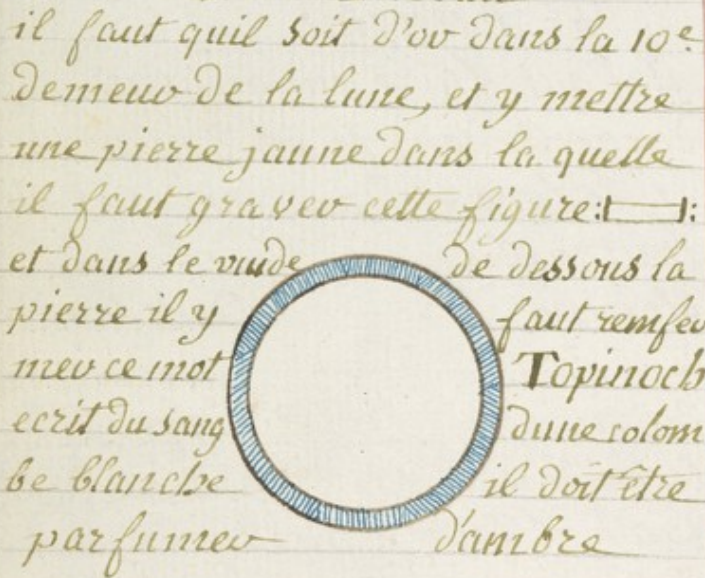 il faut quil soit d'or dans la 10e.
demeur de la lune, et y mettre
une pierre jaune dans la quelle
il faut graver cette figure:
et dans le vuide de dessous la
pierre il y faut renfer
mer ce mot Topinoch
ecrit du sang dune colom
be blanche il doit être
parfumer d'ambre